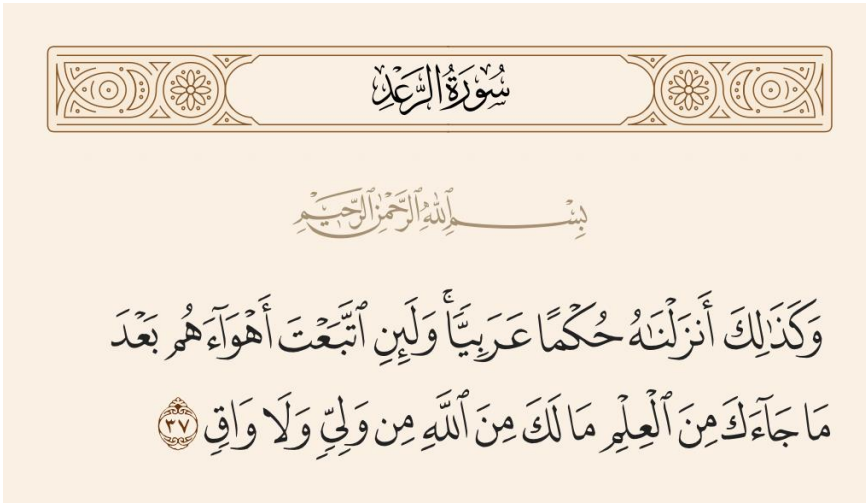 سُورَةُ الرَّعْدِ
بِسْمِ ٱللَّهِ ٱلرَّحْمَٰنِ ٱلرَّحِيمِ
وَكَذَٰلِكَ أَنزَلْنَٰهُ حُكْمًا عَرَبِيًّاۚ وَلَئِنِ ٱتَّبَعْتَ أَهْوَآءَهُم بَعْدَ
مَا جَآءَكَ مِنَ ٱلْعِلْمِ مَا لَكَ مِنَ ٱللَّهِ مِن وَلِيٍّ وَلَا وَاقٍ ٣٧